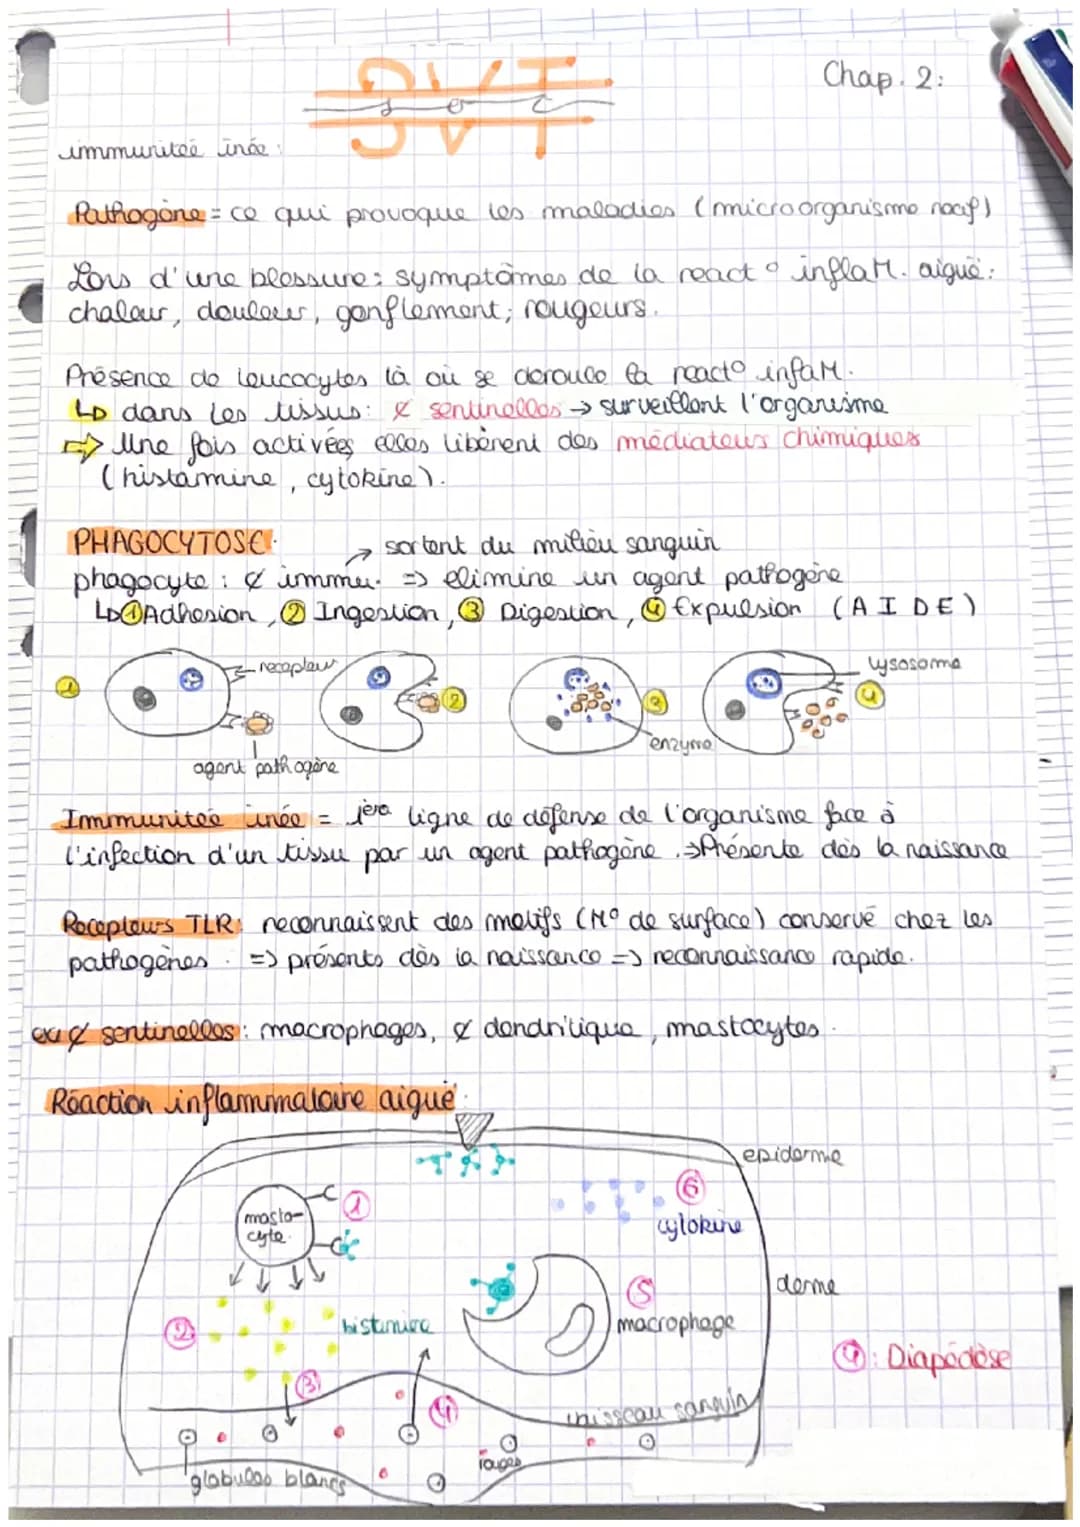 SVT
Chap. 2:
immunitée inée :
Pathogène = ce qui provoque les maladies (microorganisme nocif)
Lors d'une blessure : symptômes de la react° inflaM. aiguë :
chaleur, douleur, gonflement, rougeurs.
Présence de leucocytes là où se deroule la react° infaM.
↳ dans les tissus: ¢ sentinelles → surveillent l'organisme
⇒ Une fois activées elles libèrent des médiateurs chimiques
(histamine, cytokine).
PHAGOCYTOSE:
→ sortent du milieu sanguin
phagocyte : ¢ immu. => elimine un agent pathogène
↳ ① Adhesion, ② Ingestion, ③ Digestion, ④ Expulsion (A I D E)
① recepteur ② ③ lysosome ④
enzyme
agent pathogène
Immunitée inée = 1ère ligne de défense de l'organisme face à
l'infection d'un tissu par un agent pathogène. ⇒ Présente dès la naissance
Recepteurs TLR: reconnaissent des motifs (M° de surface) conservé chez les
pathogènes. => présents dès la naissance => reconnaissance rapide.
ex ¢ sentinelles : macrophages, ¢ dendritique, mastocytes.
Réaction inflammatoire aiguë :
epiderme
masto-
cyte. ①
⑥
cytokine
derme
⑤
macrophage
② histamine
③
④ : Diapédèse
④
vaisseau sanguin
rouges
globules blancs